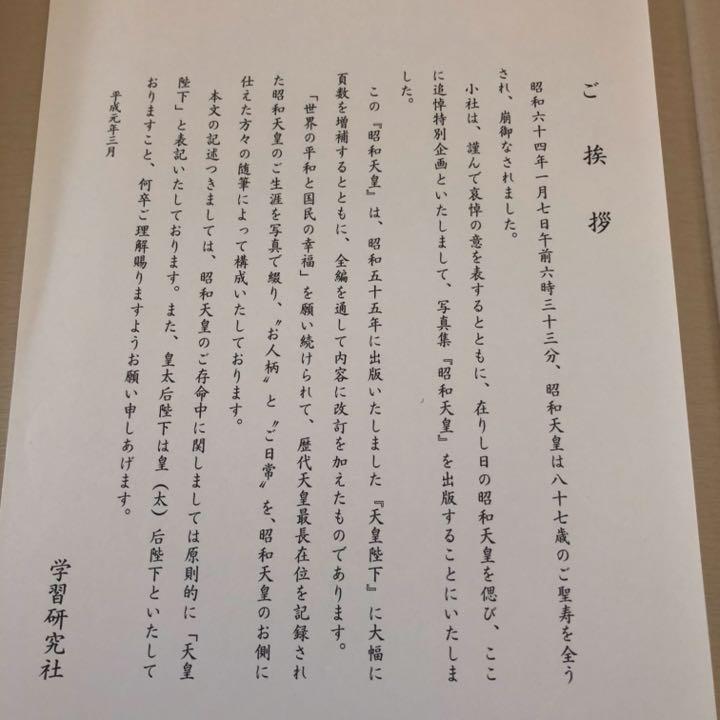 ご挨拶
昭和六十四年一月七日午前六時三十三分、昭和天皇は八十七歳のご聖寿を全う
され、崩御なされました。
小社は、謹んで哀悼の意を表するとともに、在りし日の昭和天皇を偲び、ここ
に追悼特別企画といたしまして、写真集『昭和天皇』を出版することにいたしま
した。
この『昭和天皇』は、昭和五十五年に出版いたしました『天皇陛下』に大幅に
頁数を増補するとともに、全編を通して内容に改訂を加えたものであります。
「世界の平和と国民の幸福」を願い続けられて、歴代天皇最長在位を記録され
た昭和天皇のご生涯を写真で綴り、〝お人柄〟と〝ご日常〟を、昭和天皇のお側に
仕えた方々の随筆によって構成いたしております。
本文の記述つきましては、昭和天皇のご存命中に関しましては原則的に「天皇
陛下」と表記いたしております。また、皇太后陛下は皇（太）后陛下といたして
おりますこと、何卒ご理解賜りますようお願い申しあげます。
平成元年三月
学習研究社